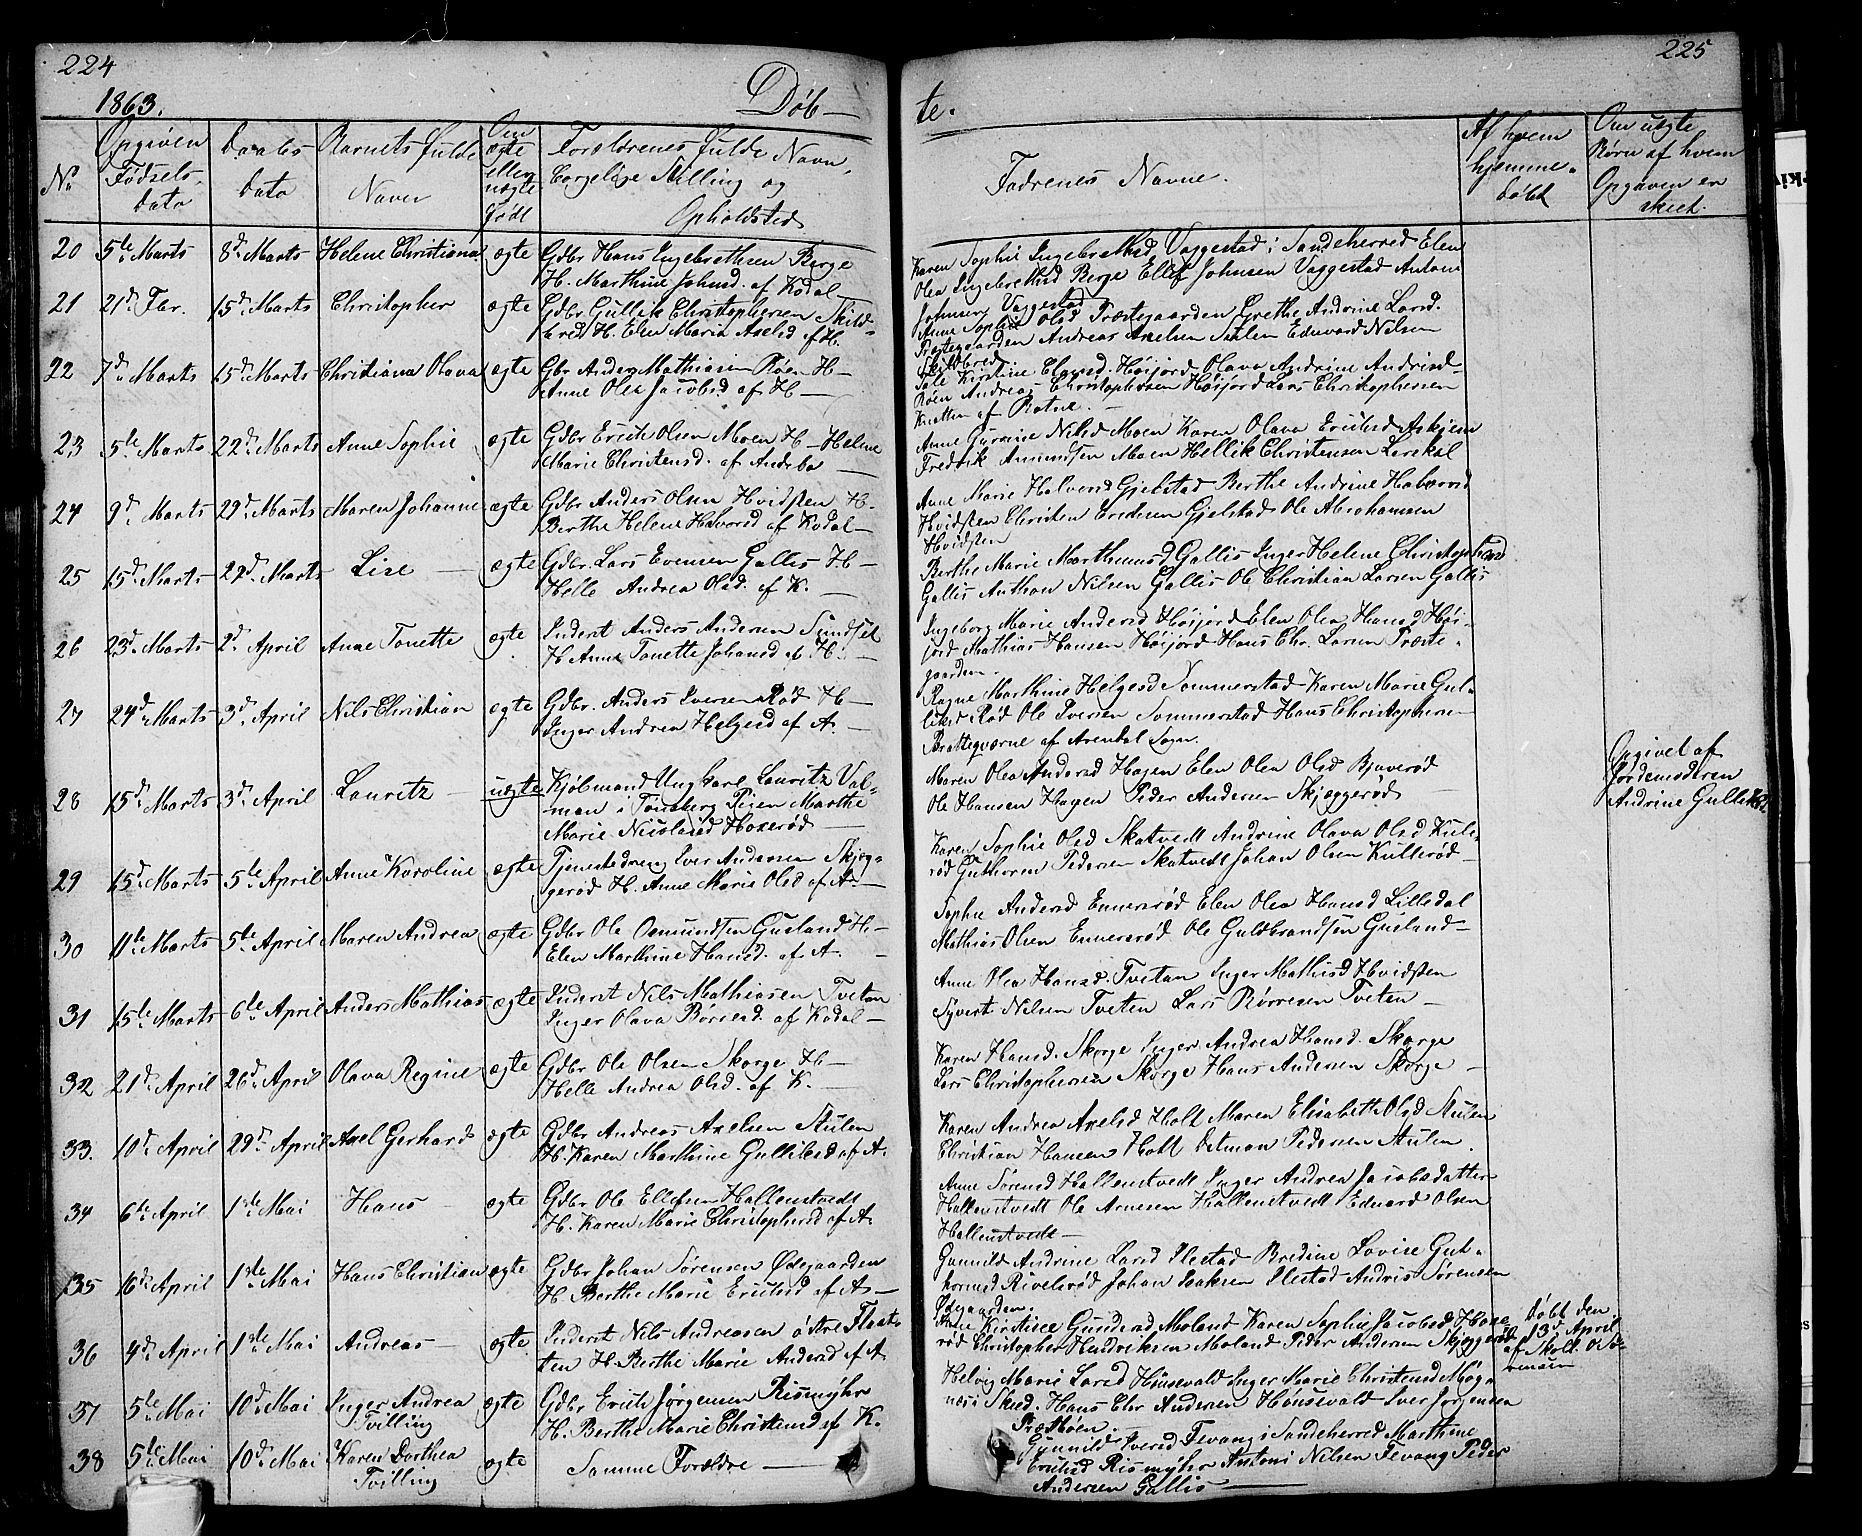 224
1863.
Døb-
No
Opgiven Fødsels dato
Daabs dato
Barnets fulde Navn
Om ægte eller uægte født
Forældrenes fulde Navn, borgelige Stilling og Opholdsted
20 5te Marts 8d Marts Helene Christiana ægte Gdbr Hans Ingebrethsen Berge
H. Marthine Johnsd. af Kodal
21 21d Fbr. 15d Marts Christopher ægte Gdbr Gullik Christophersen Skild-
bred H. Elen Maria Axelsd af H.
22 7d Marts 15d Marts Christiana Olava ægte Gbr Anders Mathiasen Röen H-
Anne Olea Jacobsd af H-
23 5te Marts 22d Marts Anne Sophie ægte Gdbr Erich Olsen Moen H- Helene
Marie Christensd. af Andebo
24 9d Marts 29d Marts Maren Johanne ægte Gdbr Anders Olsen Hvidsten H.
Berthe Helene Halvorsd af Kodal-
25 15d Marts 29d Marts Lise ægte Gdbr. Lars Evensen Gallis H-
Helle Andrea Olsd. af K.
26 23d Marts 2d April Anne Tonette ægte Inderst Anders Andersen Sundset
H. Anne Tonette Johansd af H.
27 24d Marts 3d April Nils Christian ægte Gdbr. Anders Iversen Rød H-
Inger Andrea Helgesd af A.
28 15d Marts 3d April Lauritz uægte Kjøbmand Ungkarl Lauritz Val-
man i Tønsberg Pigen Marthe
Marie Nicolaisd Hoxerød
29 15d Marts 5te April Anne Karoline ægte Tjenestedreng Iver Andersen Skjeg-
gerød H. Anne Marie Olsd af A.
30 11te Marts 5te April Maren Andrea ægte Gdbr Ole Osmundsen Gusland H-
Elen Marthine Hansd. af A.
31 15de Marts 6te April Anders Mathias ægte Inderst Nils Mathiasen Tveten
Inger Olava Börresd. af Kodal-
32 21d April 26d April Olava Regine ægte Gdbr Ole Olsen Skorge H-
Helle Andrea Olsd. af K.
33. 10d April 29d April Axel Gerhard ægte Gdbr Andreas Axelsen Stulen
H. Karen Marthine Gulliksd af A.
34 6te April 1ste Mai Hans ægte Gdbr Ole Ellefsen Hallenstvedt
H. Karen Marie Christophersd af A.
35 16d April 1ste Mai Hans Christian ægte Gdbr Johan Sørensen Ødegaarden
H. Berthe Marie Ericksd af A-
36 4d April 1ste Mai Andreas ægte Inderst Nils Andreasen østre Flaat-
ten H. Berthe Marie Andersd af A
37 5te Mai 10d Mai Inger Andrea Tvilling ægte Gdbr Erich Jørgensen Rismyhr
H. Berthe Marie Christensd af K.
38 5te Mai 10d Mai Karen Dorthea Tvilling ægte Samme Forældre
225
te.
Fadrenes Navne.
Af hvem hjemme-døbt
Om uægte Børn af hvem Opgaven er skeet.
Karen Sophie Ingebrethsd Vaggestad i Sandeherred Elen
Olea Ingebrethsd Berge Ellef Johnsen Vaggestad Antoni
Johnsen Vaggestad
Anne Sophie Olsd Præstegaarden Grethe Andrine Larsd.
Præstegaarden Andreas Axelsen Stulen Edevard Nilsen
Skildbred
Kirstine Høijord Olava Andrine Andersd-
Röen Andreas Christophersen Høijord Lars Christophersen
Knatten af Ratne.
Anne Gurine Nilsd Moen Karen Olava Ericksd Askjem
Fredrik Amundsen Moen Hellik Christensen Lerskal
Anne Marie Halvorsd Gjelstad Berthe Andrine Halvorsd
Hvidsten Christen Evensen Gjelstad Ole Abrahamsen
Hvidsten
Berthe Marie Marthinusd Gallis Inger Helene Christophersd
Gallis Anthon Nilsen Gallis Ole Christian Larsen Gallis
Ingeborg Marie Andersd Høijord Elen Olea Hansd Høi-
jord Mathias Hansen Høijord Hans Chr. Larsen Præste-
gaarden
Ragne Marthine Helgesd Sommerstad Karen Marie Gul-
liksd Rød Ole Iversen Sommerstad Hans Christophersen
Brattegværne af Arendal Sogn.
Maren Olea Andersd Hagen Elen Olea Olsd Bjuerød
Ole Hansen Hagen Peder Andersen Skjeggerød
Opgivet af
Jordemoderen
Andrine Gulliksd.
Karen Sophie Olsd Skatvedt Andrine Olava Olsd Kulle-
rød Guthoren Pedersen Skatvedt Johan Olsen Kullerød-
Sophie Andersd Ennersrød Elen Olea Hansd Lilledal
Mathias Olsen Ennersrød Ole Guldbrandsen Gusland-
Anne Olea Hansd. Tveten Inger Mathisd Hvidsten
Syvert Nilsen Tveten Lars Börresen Tveten -
Karen Hansd. Skorge Inger Andrea Hansd. Skorge
Lars Christophersen Skorge Hans Andersen Skorge -
Karen Andrea Axelsd Holt Maren Elisabeth Olsd Stulen
Christian Hansen Holt Detman Pedersen Stulen.
Anne Sørensd Hallenstvedt Inger Andrea Jacobsdatter
Hallenstvedt Ole Arnesen Hallenstvedt Edvard Olsen
Hallenstvedt-
Gunnild Andrine Larsd Ilestad Bredine Lovise Gut-
tormsd Rivelsrød Johan Isaksen Ilestad Andris Sørensen
Ødegaarden.
Anne Kirstine Gundersd Moland Karen Sophie Jacobsd Hoxe-
rød Christopher Hendriksen Moland Peder Andersen Skjeggerød
Døbt den
13d April
af Skoll.
Helvig Marie Larsd Hønsevald Inger Marie Christensd Møg-
næs i Skeed. Hans Chr Andersen Hønsevald Iver Jørgensen
Præstbøen.
Gunnild Iversd Tevang i Sandeherred Marthine
Ericksd Rismyhr Antoni Nilsen Tevang Peder
Andersen Gallis